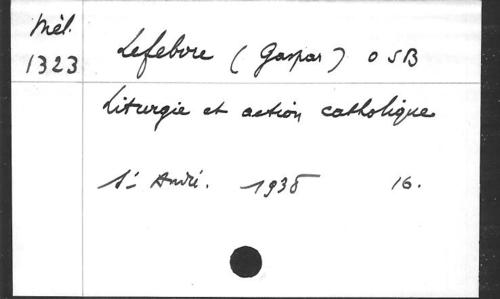 Mél.
1323
Lefebvre (Gaspar) OSB
Liturgie et action catholique
St André. 1938 16.